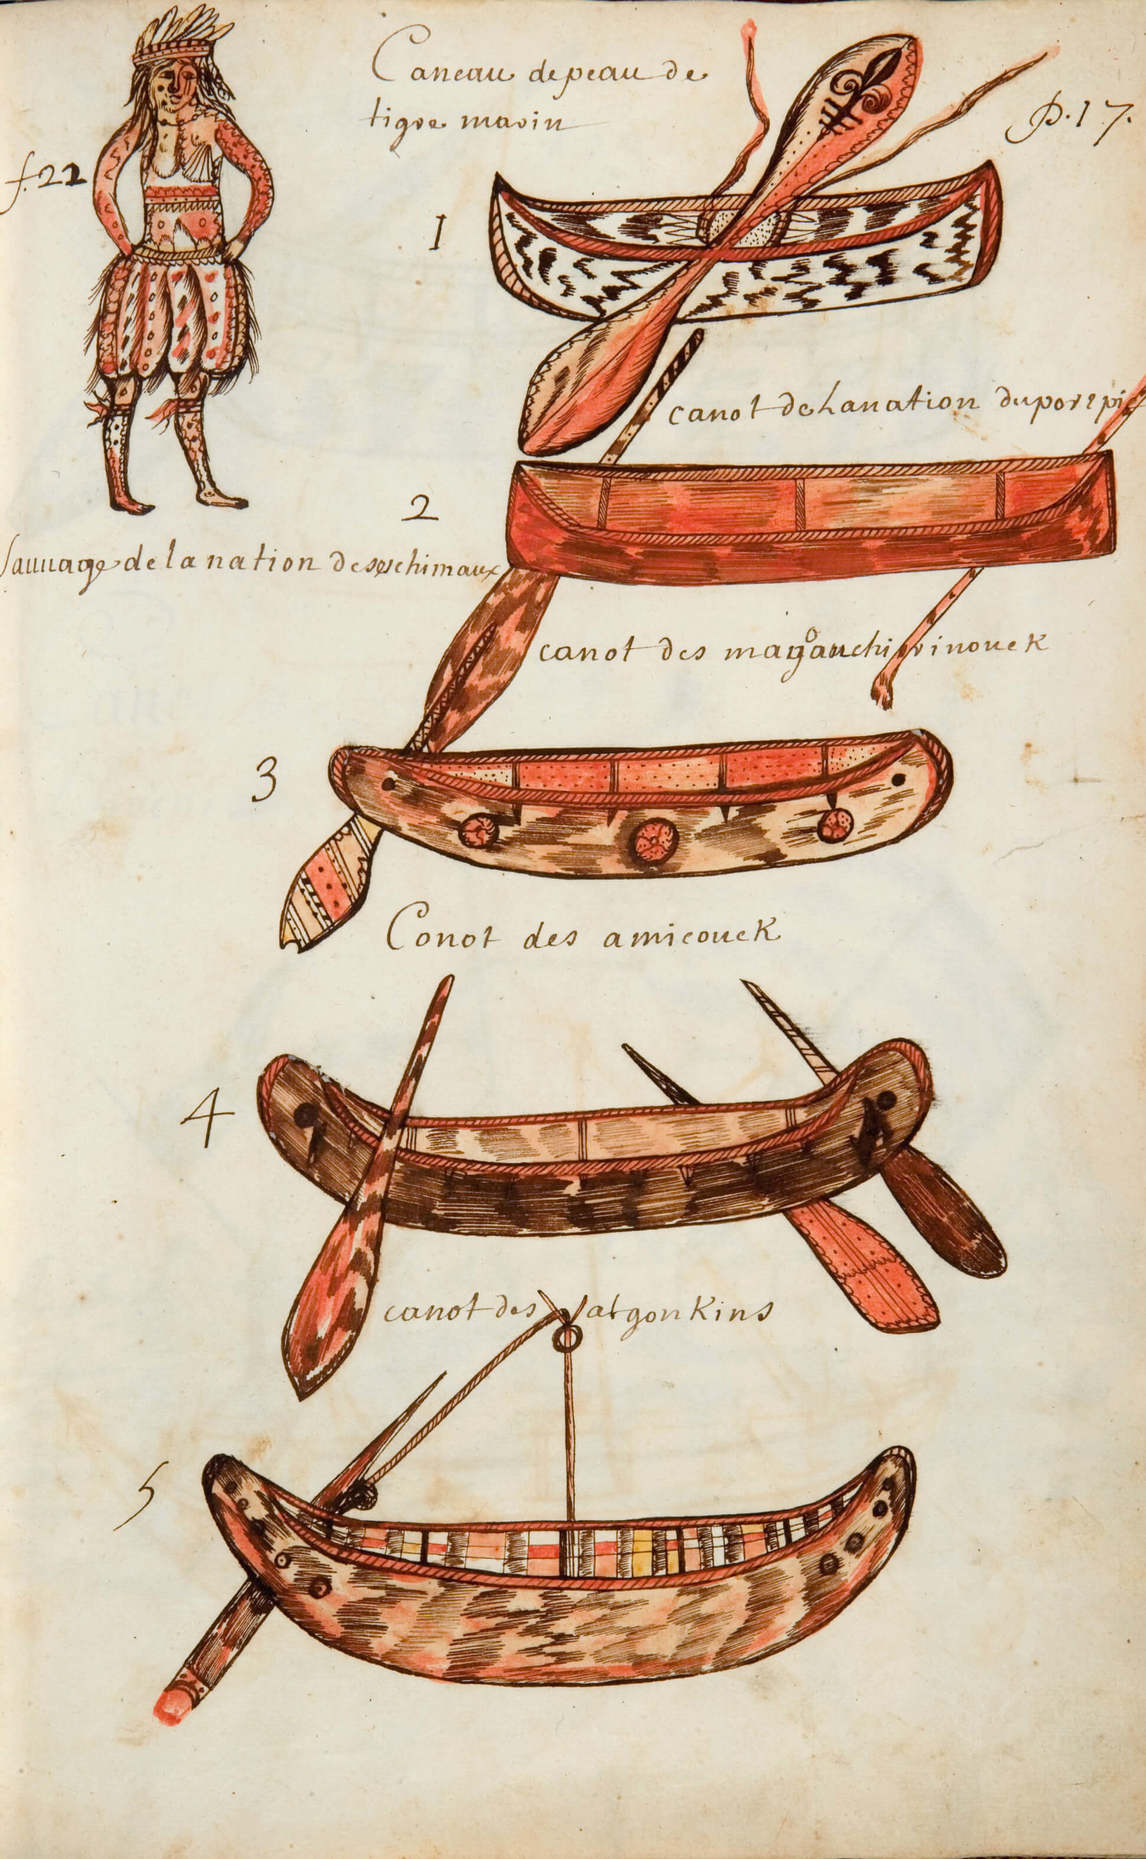 Caneau de peau de
tigre marin
P. 17.
f. 22
1
canot de la nation du porcpic
2
Sauuage de la nation des eschimaux
canot des
3
Conot des amicouek
4
canot des algonkins
5